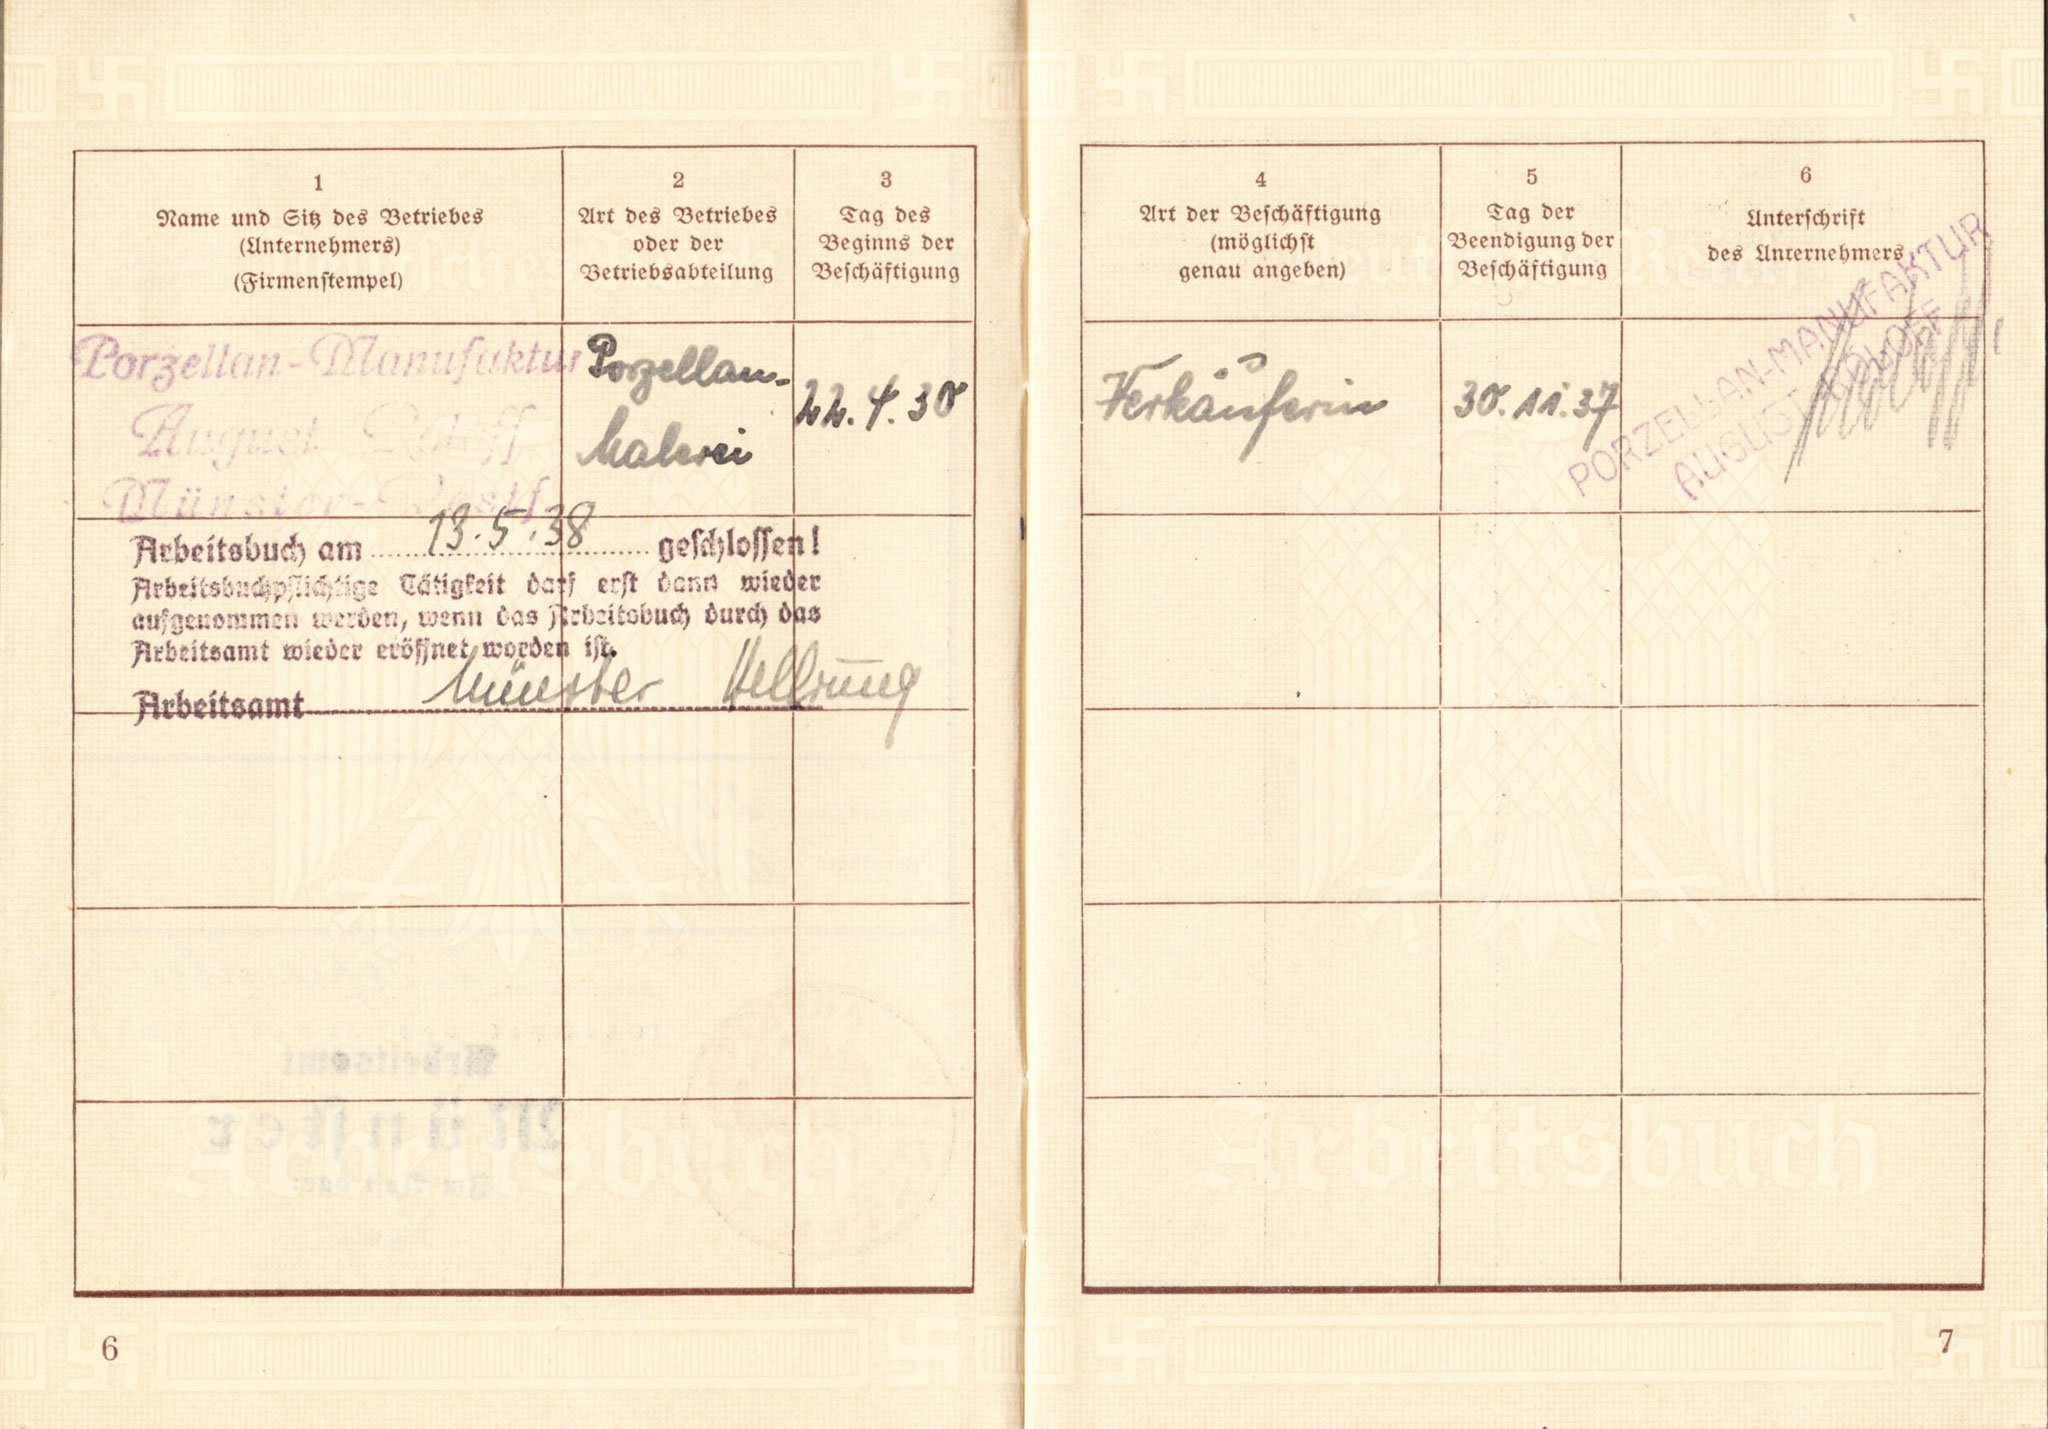 1
Name und Sitz des Betriebes
(Unternehmers)
(Firmenstempel)
2
Art des Betriebes
oder der
Betriebsabteilung
3
Tag des
Beginns der
Beschäftigung
Porzellan-Manufaktur
August
Münster-Westf.
Porzellan-
Malerei
22.4.30
Arbeitsbuch am 13.5.38 geschlossen!
Arbeitsbuchpflichtige Tätigkeit darf erst dann wieder
aufgenommen werden, wenn das Arbeitsbuch durch das
Arbeitsamt wieder eröffnet worden ist.
Arbeitsamt Münster
6
4
Art der Beschäftigung
(möglichst
genau angeben)
5
Tag der
Beendigung der
Beschäftigung
6
Unterschrift
des Unternehmers
Verkäuferin
30.11.37
PORZELLAN-MANUFAKTUR
AUGUST
Arbeitsbuch
Arbeitsbuch
7